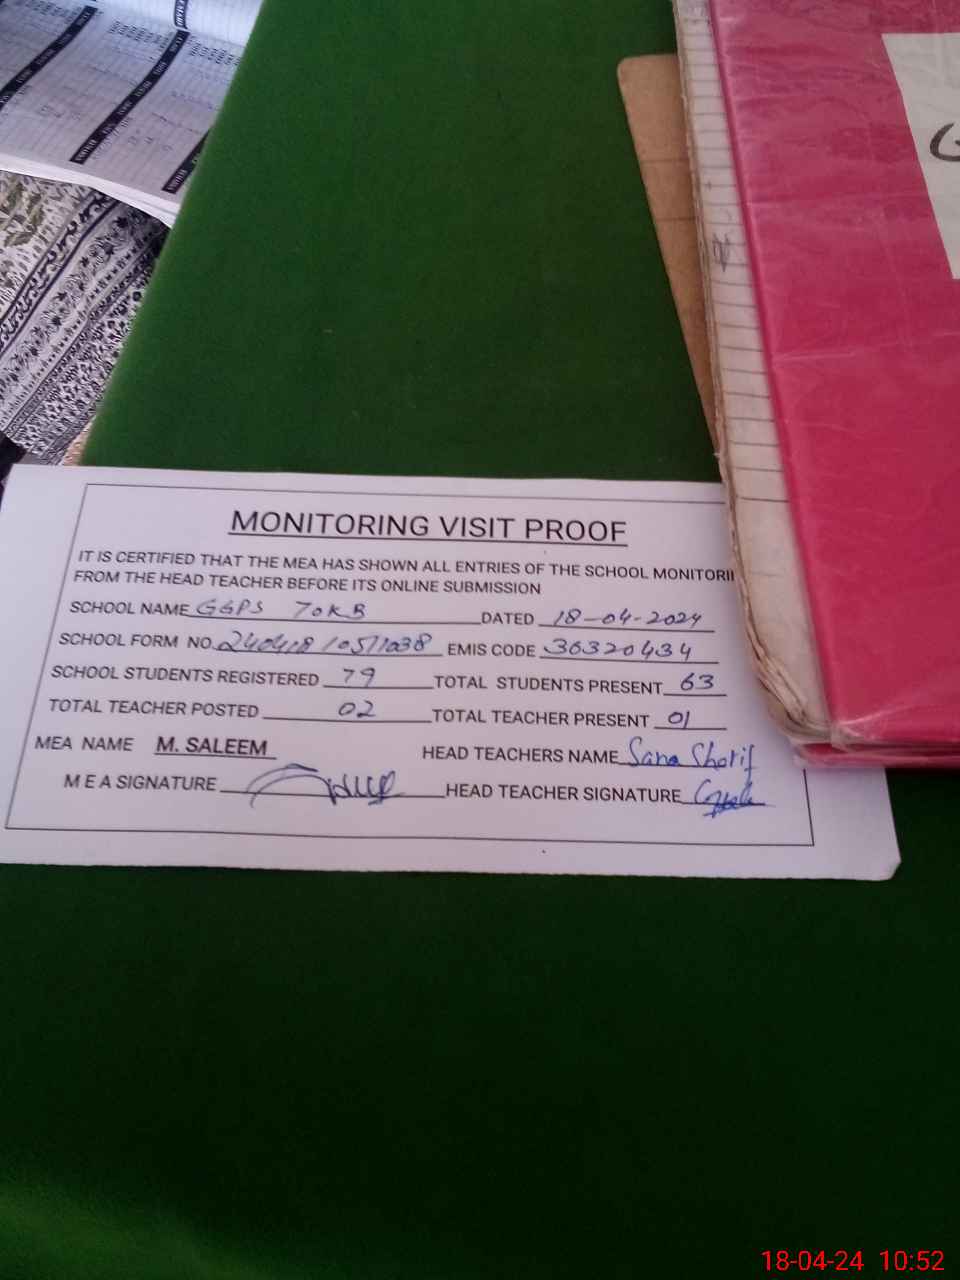 MONITORING VISIT PROOF
IT IS CERTIFIED THAT THE MEA HAS SHOWN ALL ENTRIES OF THE SCHOOL MONITORI
FROM THE HEAD TEACHER BEFORE ITS ONLINE SUBMISSION
SCHOOL NAME GGPS 70KB DATED 18-04-2024
SCHOOL FORM NO. 240418 10511038 EMIS CODE 36320434
SCHOOL STUDENTS REGISTERED 79 TOTAL STUDENTS PRESENT 63
TOTAL TEACHER POSTED 02 TOTAL TEACHER PRESENT 01
MEA NAME M. SALEEM HEAD TEACHERS NAME Sana Sharif
M E A SIGNATURE HEAD TEACHER SIGNATURE
G
18-04-24 10:52